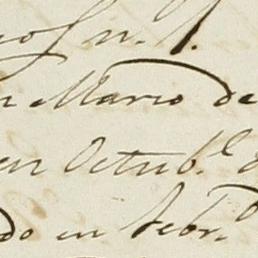 n. 1.
n Marzo de
en Octub.e
do en Febr.o